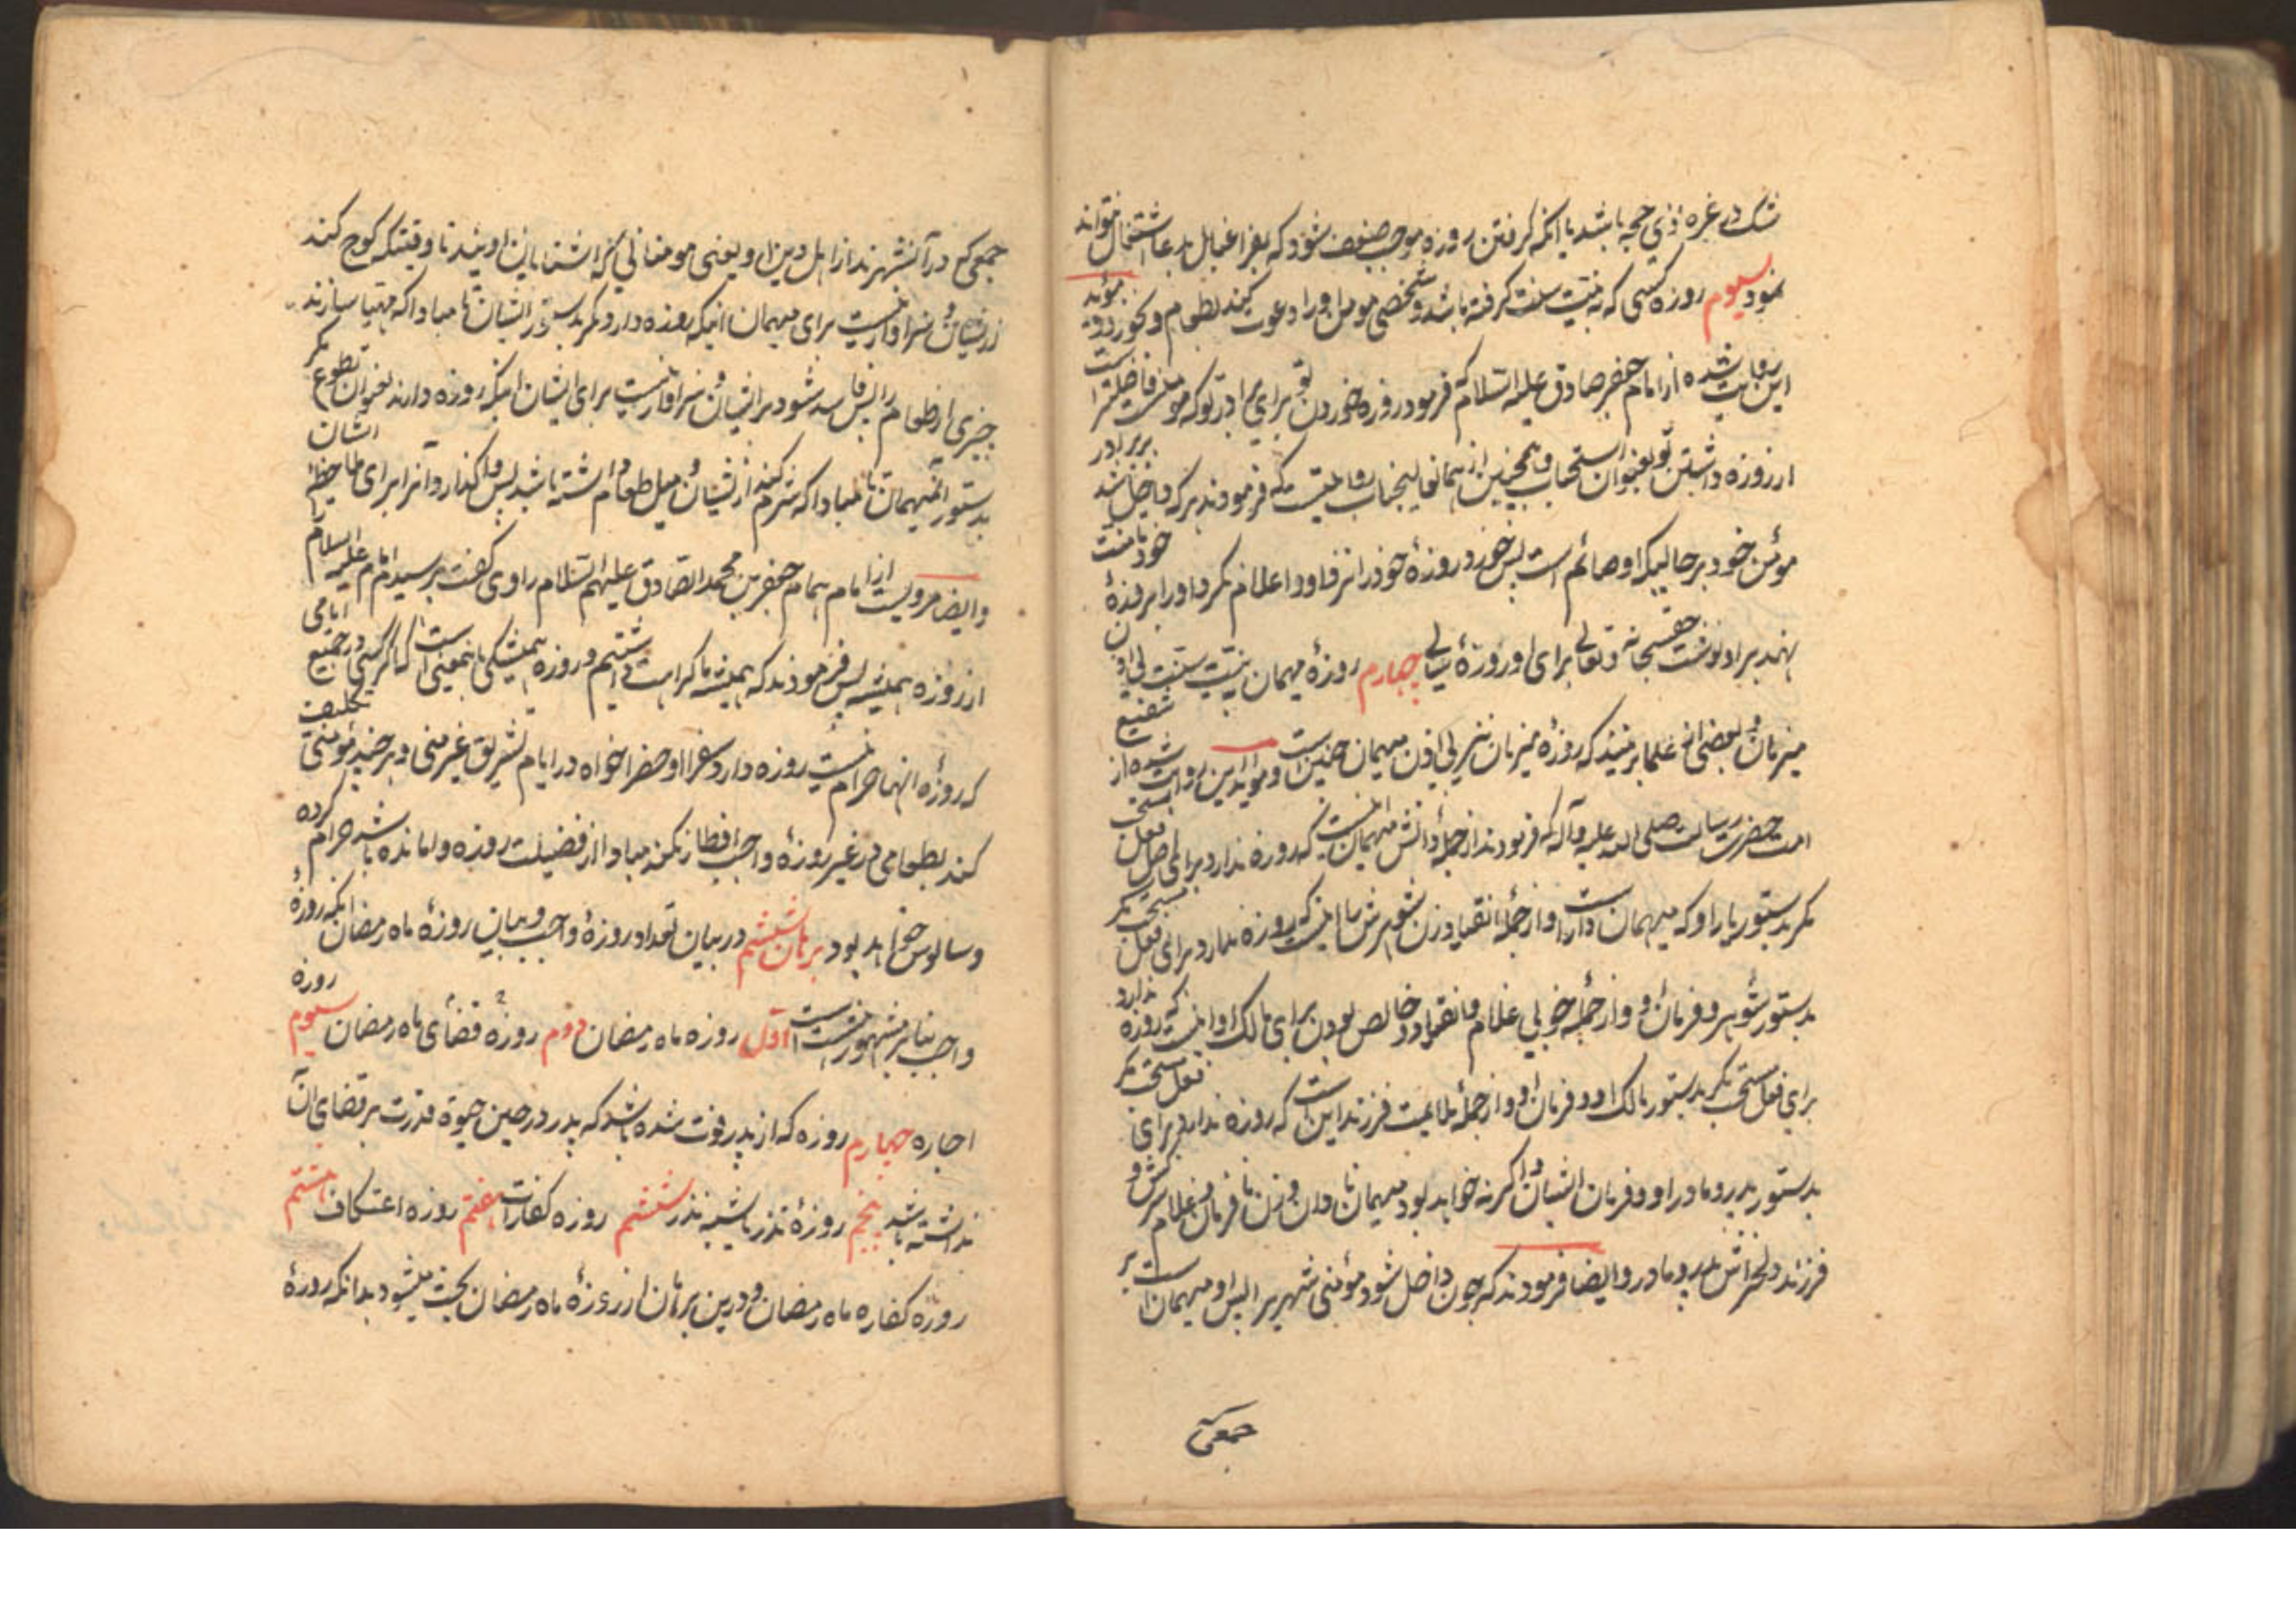 شک در غره ذی حجه باشد یا آنکه گرفتن روزه موجب ضعف شود که بفراغبال بدعا اشتغال نتواند
نمود سیوم روزه کسی که به نیت سنت گرفته باشد و شخصی مومن او را دعوت کند بطعام و بخورد و مؤید
این روایت شده از امام جعفر صادق علیه السلام که فرمود روزه خوردن تو برای برادر تو که مومنست فاضلتر است
از روزه داشتن تو بعنوان استحباب و همچنین از همانعالیجناب روایتیست که فرمودند هر که داخل شد بر برادر
مؤمن خود بر حالیکه او صائم است پس خورد روزهٔ خود را نزد او و اعلام نکرد او را بروزهٔ خود تا منت
نهد بر او نوشت حقسبحانه و تعالی برای او روزهٔ سالی چهارم روزهٔ میهمان بنیت سنت بی اذن
میزبان و بعضی از علما برینند که روزهٔ میزبان نیز بی اذن میهمان چنین است و مؤید این روایت شده از شفیع
امت حضرت رسالت صلی الله علیه وآله که فرمودند از جملهٔ دانش میهمان اینست که روزه ندارد برای اصل فعل سنتی
مگر بدستور یار او که میهمان دار است و از جملهٔ انقیاد زن شوهرش را اینست که روزه ندارد برای فعل مستحب مگر
بدستور شوهر و فرمان او و از جملهٔ خوبی غلام و انقیاد و خالص بودن برای مالک او اینست که روزه ندارد
برای فعل سنتی مگر بدستور مالک او و فرمان او و از جملهٔ ملایمت فرزند این است که روزه ندارد برای فعل سنتی مگر
بدستور پدر و مادر او و فرمان ایشان و اگر نه خواهد بود میهمان نادان و زن نافرمان و غلام سرکش و
فرزند دلخراش پدر و مادر و ایضا فرمودند که چون داخل شود مؤمنی شهریرا پس او میهمان است بر
جمعی
جمعی که در آنشهرند از اهل دین او یعنی مومنانی که آشنا باین اویند تا وقتیکه کوچ کند
از ایشان و سزاوار نیست برای میهمان اینکه روزه دارد مگر بدستور ایشان تا مبادا که مهیا سازند
چیزی از طعام را پس فاسد شود بر ایشان و سزاوار نیست برای ایشان اینکه روزه دارند بعنوان تطوع مگر
بدستور آنمیهمان تا مبادا که شرم کند از ایشان و میل طعام داشته باشد پس واگذارد آنرا برای ملاحظه ایشان
و ایضا مرویست از امام همام جعفر بن محمد الصادق علیهم السلام راوی گفت پرسیدم از امام علیه السلام
از روزه همیشه پس فرمودند که همیشه ما کراهت داشتیم و روزه همیشگی باینمعنی است که اگر کسی در جمیع ایامی
که روزه آنها حرام نیست روزه دارد سفرا و حضرا خواه در ایام تشریق غیر منی و هر چند مؤمنی تکلیف
کند بطعامی در غیر روزهٔ واجب افطار نکند مبادا از فضیلت روزه وامانده باشد حرام کرده
و سالوس خواهد بود برهان ششم در بیان تعداد روزهٔ واجب و بیان روزهٔ ماه رمضان آنکه روزهٔ
واجب بنابر مشهور هشت است اول روزه ماه رمضان دوم روزه قضای ماه رمضان سیوم روزه
اجاره چهارم روزه که از پدر فوت شده باشد که پدر در حین حیوة قدرت بر قضای آن
نداشته باشد پنجم روزهٔ نذر یا شبه نذر ششم روزه کفارات هفتم روزه اعتکاف هشتم
روزه کفاره ماه رمضان و درین برهان از روزهٔ ماه رمضان بحث میشود بدانکه روزهٔ